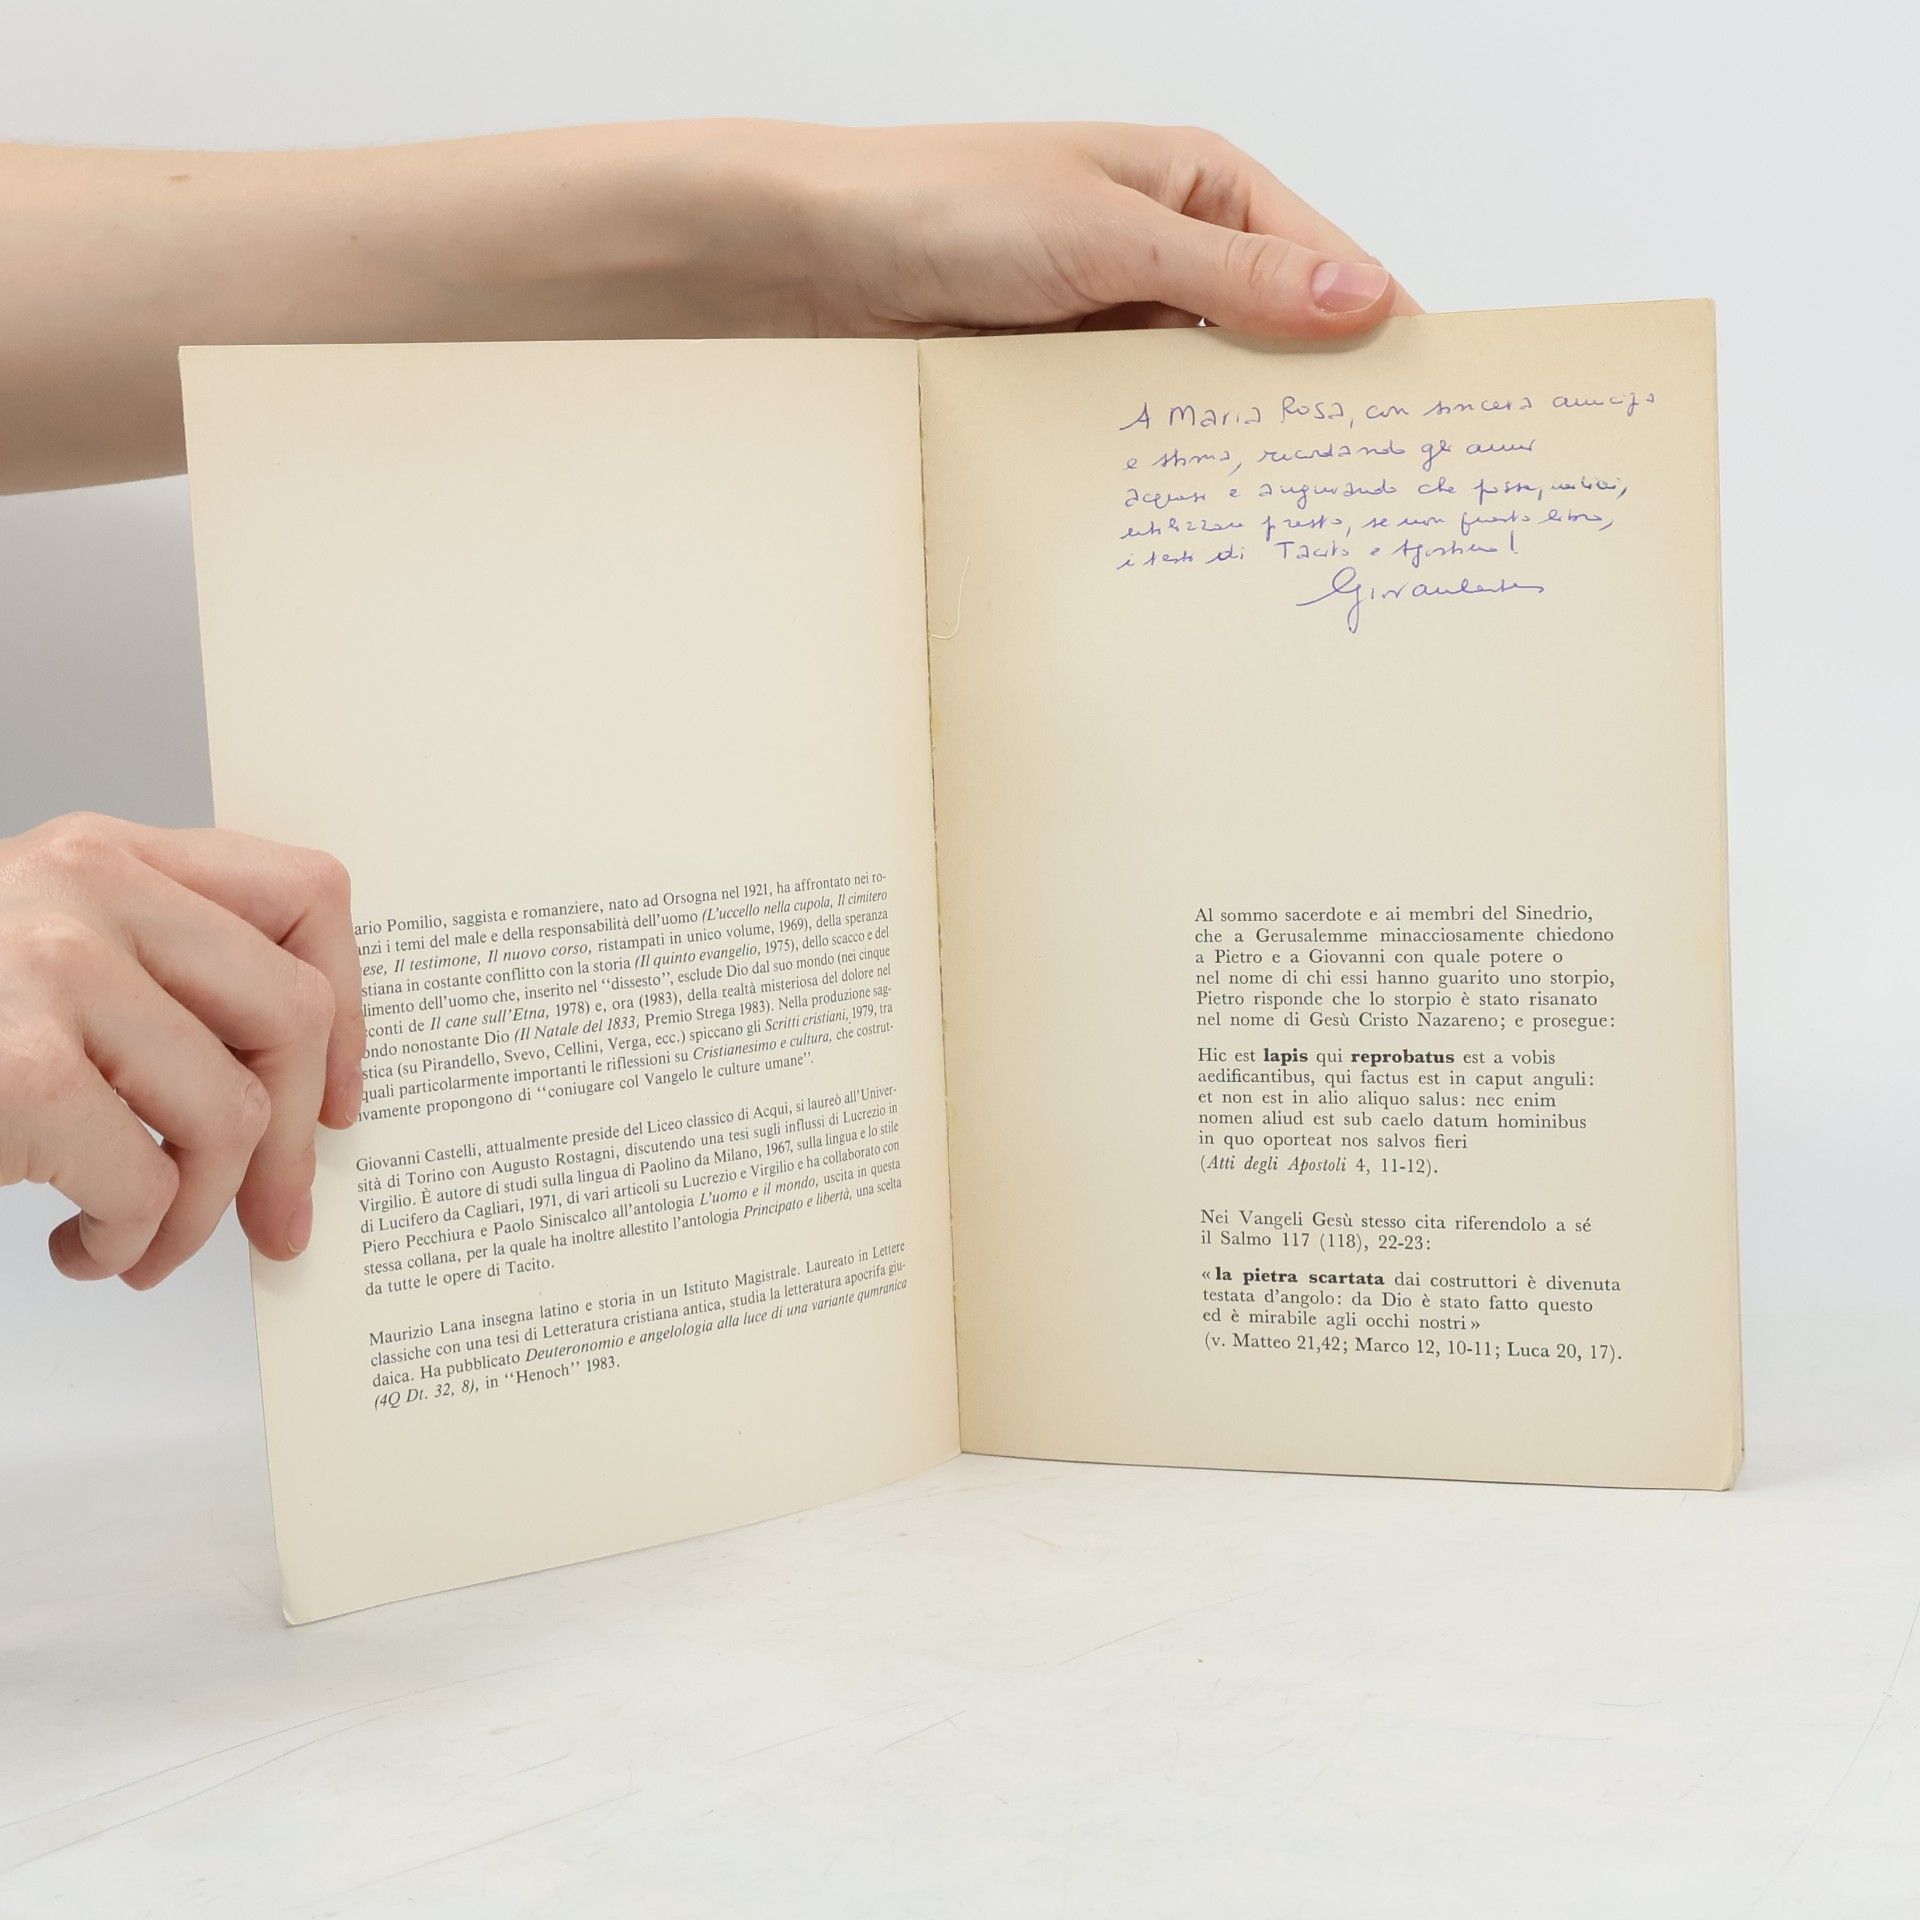 ario Pomilio, saggista e romanziere, nato ad Orsogna nel 1921, ha affrontato nei ro-
anzi i temi del male e della responsabilità dell'uomo (L'uccello nella cupola, Il cimitero
ese, Il testimone, Il nuovo corso, ristampati in unico volume, 1969), della speranza
stiana in costante conflitto con la storia (Il quinto evangelio, 1975), dello scacco e del
limento dell'uomo che, inserito nel "dissesto", esclude Dio dal suo mondo (nei cinque
conti de Il cane sull'Etna, 1978) e, ora (1983), della realtà misteriosa del dolore nel
ondo nonostante Dio (Il Natale del 1833, Premio Strega 1983). Nella produzione sag-
stica (su Pirandello, Svevo, Cellini, Verga, ecc.) spiccano gli Scritti cristiani, 1979, tra
quali particolarmente importanti le riflessioni su Cristianesimo e cultura, che costrut-
ivamente propongono di "coniugare col Vangelo le culture umane".
Giovanni Castelli, attualmente preside del Liceo classico di Acqui, si laureò all'Univer-
sità di Torino con Augusto Rostagni, discutendo una tesi sugli influssi di Lucrezio in
Virgilio. È autore di studi sulla lingua di Paolino da Milano, 1967, sulla lingua e lo stile
di Lucifero da Cagliari, 1971, di vari articoli su Lucrezio e Virgilio e ha collaborato con
Piero Pecchiura e Paolo Siniscalco all'antologia L'uomo e il mondo, uscita in questa
stessa collana, per la quale ha inoltre allestito l'antologia Principato e libertà, una scelta
da tutte le opere di Tacito.
Maurizio Lana insegna latino e storia in un Istituto Magistrale. Laureato in Lettere
classiche con una tesi di Letteratura cristiana antica, studia la letteratura apocrifa giu-
daica. Ha pubblicato Deuteronomio e angelologia alla luce di una variante qumranica
(4Q Dt. 32, 8), in "Henoch" 1983.
A Maria Rosa, con sincera amicizia
e stima, ricordando gli anni
acquesi e augurando che possa,
utilizzare presto, se non questo libro,
i testi di Tacito e Agostino!
Al sommo sacerdote e ai membri del Sinedrio,
che a Gerusalemme minacciosamente chiedono
a Pietro e a Giovanni con quale potere o
nel nome di chi essi hanno guarito uno storpio,
Pietro risponde che lo storpio è stato risanato
nel nome di Gesù Cristo Nazareno; e prosegue:
Hic est lapis qui reprobatus est a vobis
aedificantibus, qui factus est in caput anguli:
et non est in alio aliquo salus: nec enim
nomen aliud est sub caelo datum hominibus
in quo oporteat nos salvos fieri
(Atti degli Apostoli 4, 11-12).
Nei Vangeli Gesù stesso cita riferendolo a sé
il Salmo 117 (118), 22-23:
«la pietra scartata dai costruttori è divenuta
testata d'angolo: da Dio è stato fatto questo
ed è mirabile agli occhi nostri»
(v. Matteo 21,42; Marco 12, 10-11; Luca 20, 17).